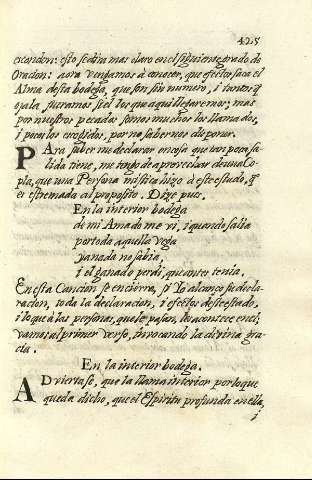 425
escandon: esto se dira mas claro en el siguiente grado de
Oracion: aora vengamos à conocer, que efectos saca el
Alma desta bodega, que son sin numero, i
ojala fueramos si el los que aqui llegaremos; mas
por nuestros pecados somos muchos los llamados,
i pocos los escogidos, por no sabernos disponer.
PAra saber me declarar en cosa que tan poca sa-
lida tiene, me tengo de aprovechar de una Co-
pla, que una Persona mistica hizo à este estado, q̃
es estremada al proposito. Dize pues.
En la interior bodega
de mi Amado me vi, i quando salia
por toda aquella vega
ya nada no sabia,
i el ganado perdi, que antes tenia.
En esta Cancion se encierra, si Yo alcanço su decla-
racion, toda la declaracion, i efectos deste estado,
i lo que à las personas, que le pasan, les acontece en el;
vamos al primer verso, invocando la divina gra-
cia.
En la interior bodega.
ADviertase, que la llama interior por lo que
queda dicho, que el Espiritu profunda en ella,
i